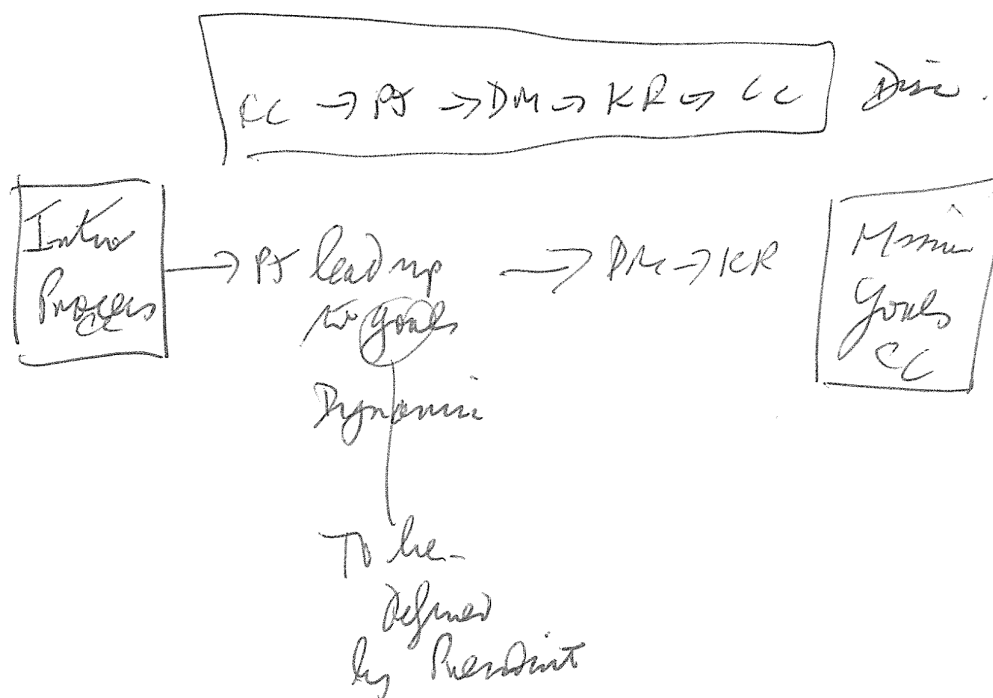 CC → PJ → DM → KR → CC Disc.
Intro
Process
CC
→ PJ lead up → DM → KR
to goals
Dynamic
Mission
Goals
CC
To be
Defined
by President